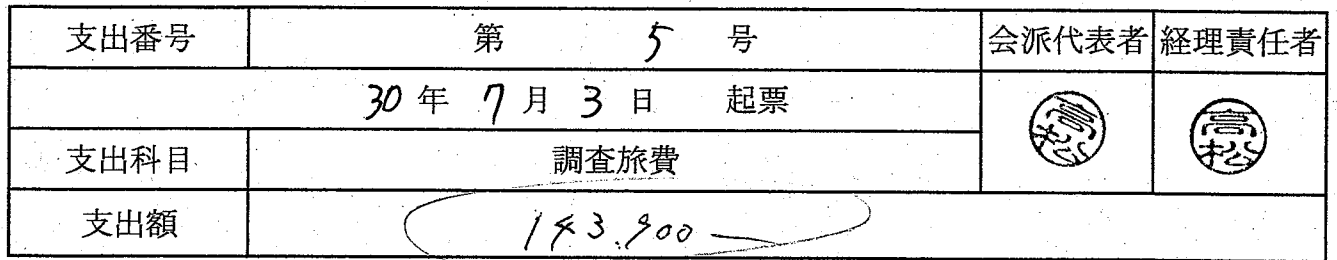 支出番号 第 5 号 会派代表者 経理責任者
30 年 7 月 3 日 起票
高松 高松
支出科目 調査旅費
支出額 143,900 —